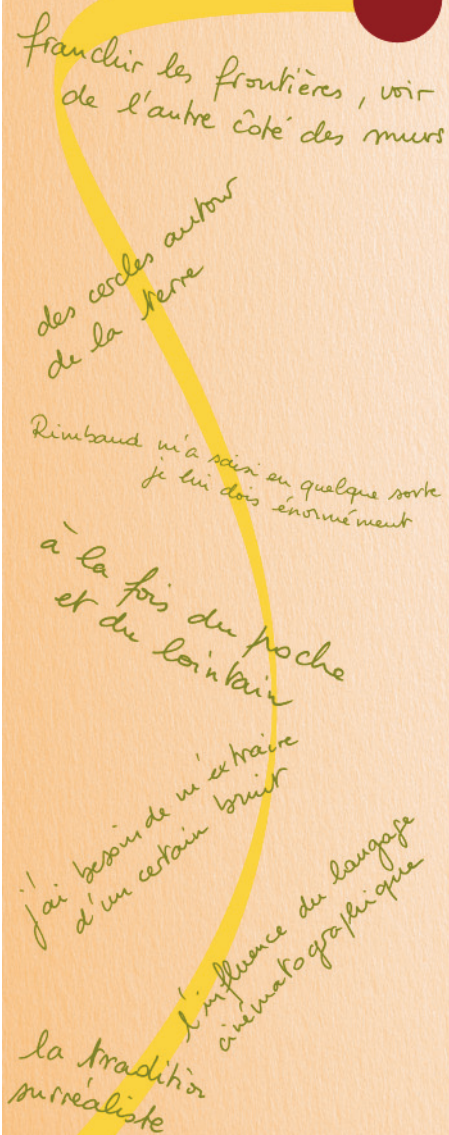 franchir les frontières, voir
de l'autre côté des murs
des cercles autour
de la terre
Rimbaud m'a saisi en quelque sorte
je lui dois énormément
à la fois du poche
et du lointain
j'ai besoin de m'extraire
d'un certain bruit
l'influence du langage
cinématographique
la tradition
surréaliste